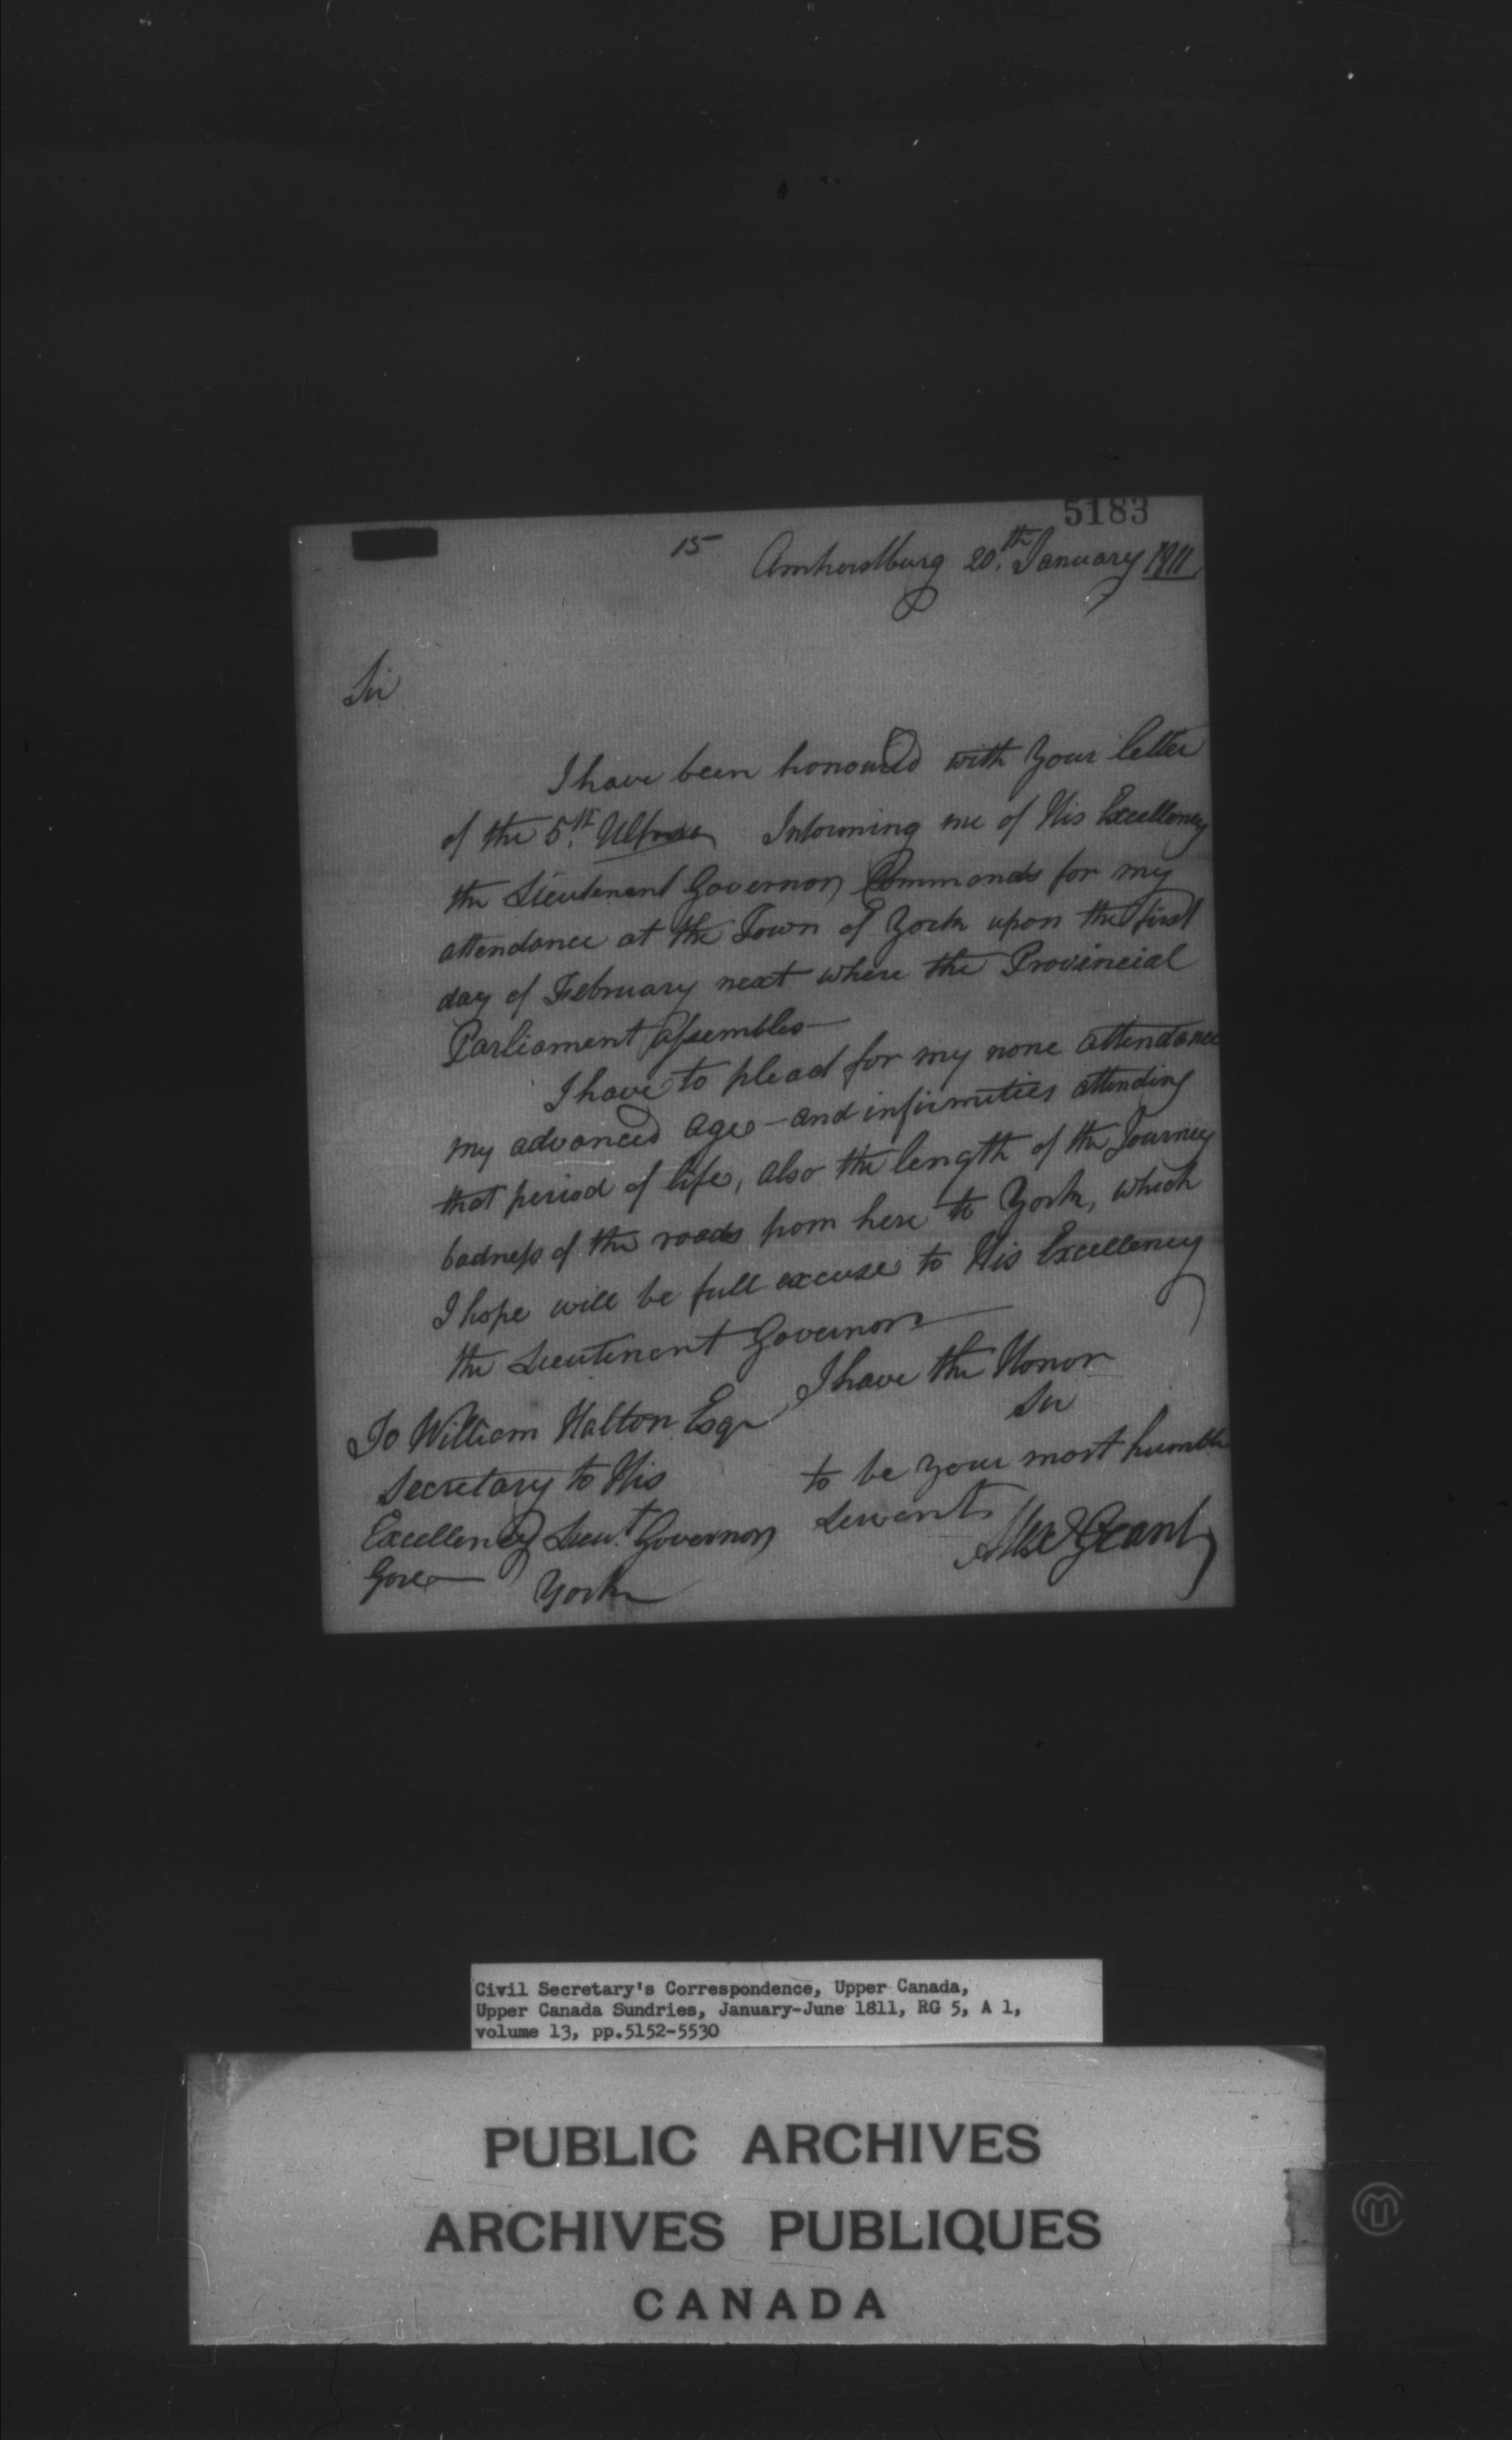 5183
15
Amherstburg 20th. January 1811
Sir
I have been honoured with Your letter
of the 5th. Informing me of His Excellency
the Lieutenant Governor Commands for my
attendance at the Town of York upon the first
day of February next where the Provincial
Parliament Assembles—
I have to plead for my none attendance
my advanced age – and infirmities attending
that period of life, also the length of the Journey
badness of the roads from here to York, which
I hope will be full excuse to His Excellency
the Lieutenant Governor—
I have the Honor
Sir
to be your most humble
servant
Alexr Grant
To William Halton Esqr
Secretary to His
Excellency Lieut. Governor
Gore—
York
Civil Secretary's Correspondence, Upper Canada,
Upper Canada Sundries, January-June 1811, RG 5, A 1,
volume 13, pp.5152-5530
PUBLIC ARCHIVES
ARCHIVES PUBLIQUES
CANADA